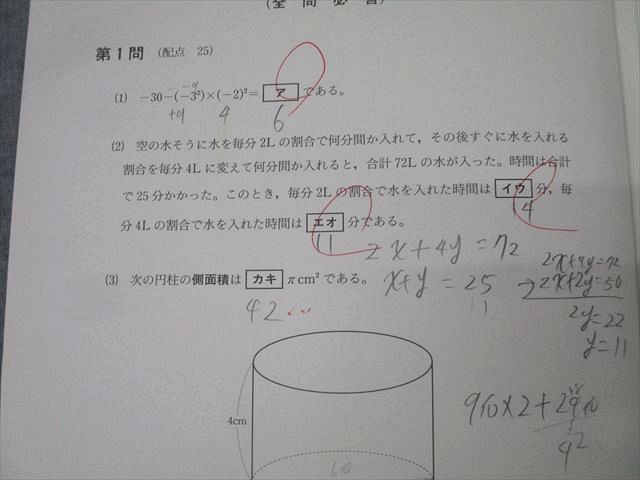 (全 問 必 答)
第1問 (配点 25)
(1) −30−(−3²)×(−2)²= ア である。
+9 4 6
(2) 空の水そうに水を毎分2Lの割合で何分間か入れて，その後すぐに水を入れる
割合を毎分4Lに変えて何分間か入れると，合計72Lの水が入った。時間は合計
で25分かかった。このとき，毎分2Lの割合で水を入れた時間は イウ 分，毎
14
分4Lの割合で水を入れた時間は エオ 分である。
11
2x+4y=72
x+y=25
11
2x+4y=72
2x+2y=50
2y=22
y=11
(3) 次の円柱の側面積は カキ π cm² である。
42
4cm
42